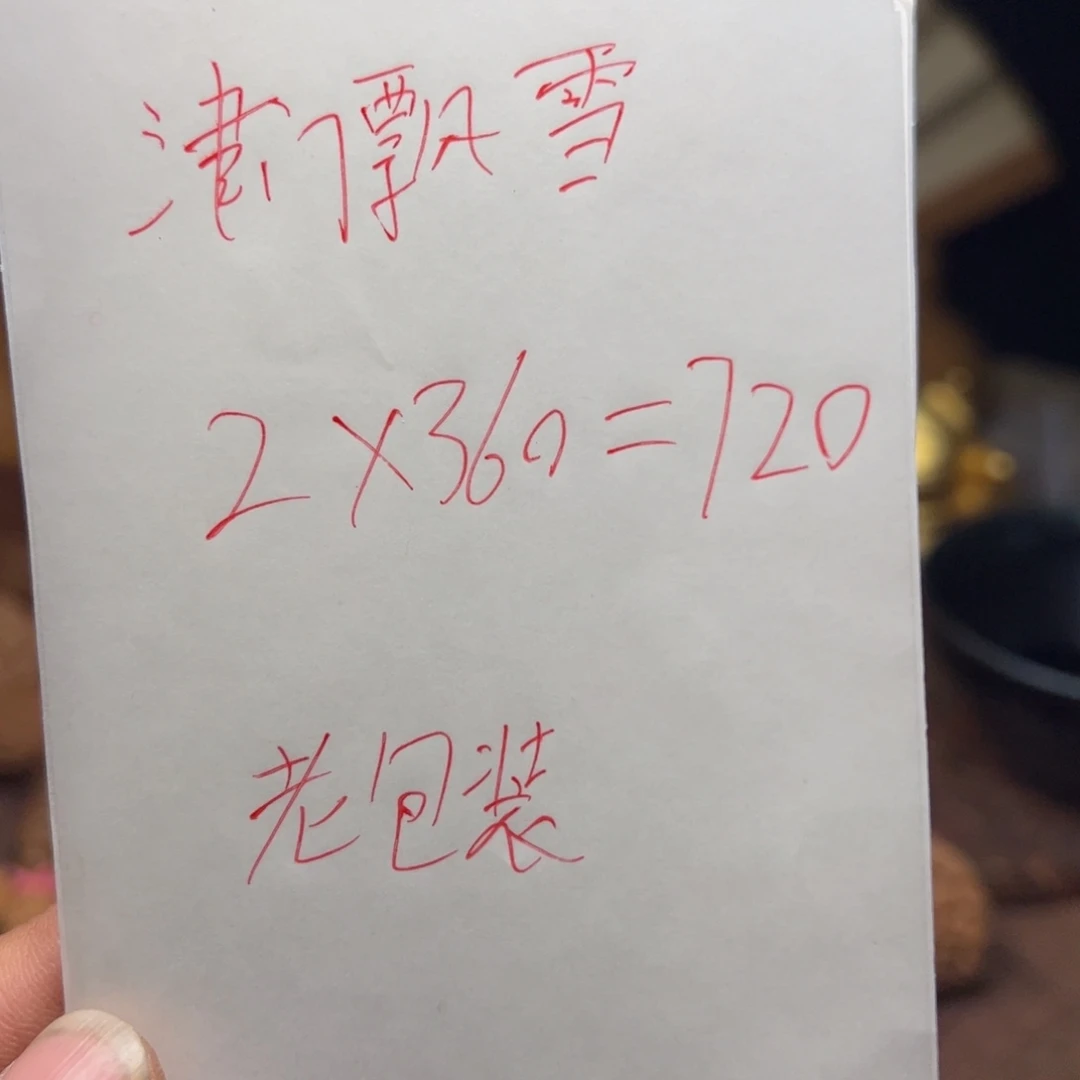 津门飘雪
2×360=720
老包装